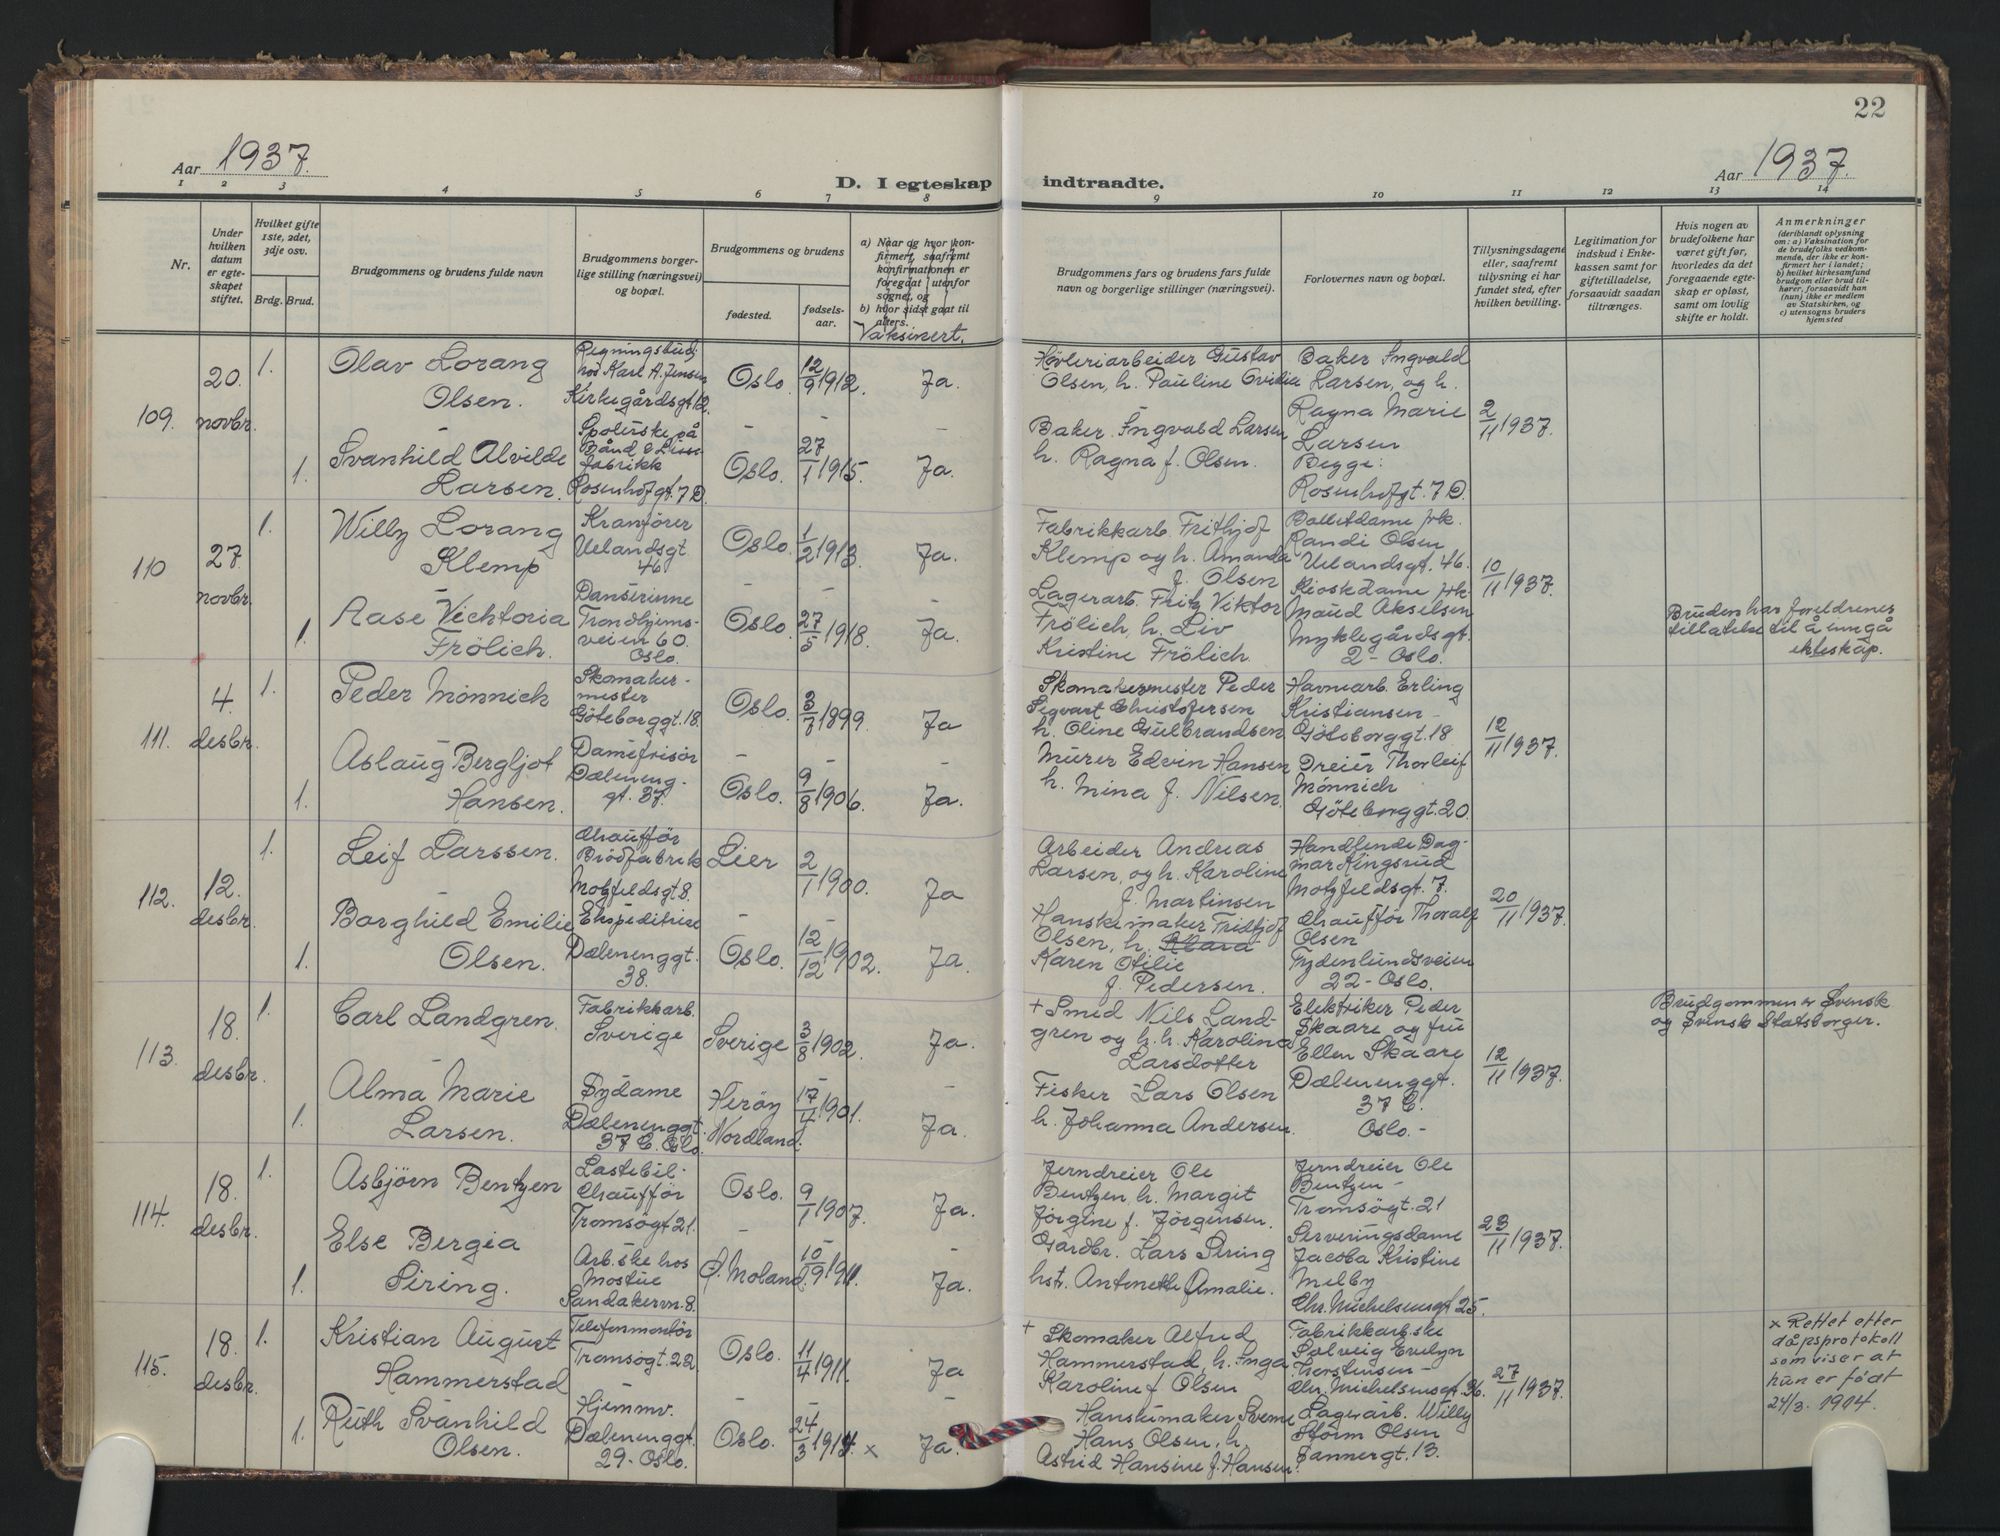 22
Aar 1937.
D. I egteskap indtraadte.
Aar 1937.
1 2 3 4 5 6 7 8 9 10 11 12 13 14
Nr.
Under hvilken datum er egteskapet stiftet.
Hvilket gifte 1ste, 2det, 3dje osv.
Brdg. Brud.
Brudgommens og brudens fulde navn
Brudgommens borgerlige stilling (næringsvei) og bopæl.
Brudgommens og brudens
fødested.
fødselsaar.
a) Naar og hvor konfirmert, saafremt konfirmationen er foregaat utenfor sognet, og
b) hvor sidst gaat til alters.
Vaksinert.
Brudgommens fars og brudens fars fulde navn og borgerlige stillinger (næringsvei).
Forlovernes navn og bopæl.
Tillysningsdagene eller, saafremt tillysning ei har fundet sted, efter hvilken bevilling.
Legitimation for indskud i Enkekassen samt for giftetilladelse, forsaavidt saadan tiltrænges.
Hvis nogen av brudefolkene har været gift før, hvorledes da det foregaaende egteskap er opløst, samt om lovlig skifte er holdt.
Anmerkninger
(deriblandt oplysning om: a) Vaksination for de brudefolks vedkommende, der ikke er konfirmert her i landet; b) hvilket kirkesamfund brudgom eller brud tilhører, forsaavidt han (hun) ikke er medlem av Statskirken, og c) utensogns bruders hjemsted
109.
20. novbr.
1.
Olav Lorang
Olsen.
Regningsbud
hos Karl A. Jensen
Kirkegårdsgt 12.
Oslo.
12/9 1912.
Ja.
Høvleriarbeider Gustav
Olsen, h. Pauline Ovidia
Baker Ingvald
Larsen, og h.
Ragna Marie
Larsen
Begge:
Rosenhofgt. 7 D.
2/11 1937.
1.
Svanhild Alvilde
Larsen.
Spolerske på
Bånd & Lisse
fabrikk
Rosenhofgt. 7 D.
Oslo.
27/1 1915.
Ja.
Baker Ingvald Larsen
h. Ragna f. Olsen.
110
27. novbr.
1.
Willy Lorang
Klemp
Kranfører
Uelandsgt.
46
Oslo.
1/2 1913.
Ja.
Fabrikkarb. Frithjof
Klemp og h. Amanda
f. Olsen
Balletdame frk.
Randi Olsen
Uelandsgt. 46.
Kioskdame frk.
Maud Akselsen
Myklegårdsgt.
2 - Oslo.
10/11 1937.
1.
Aase Vichtoria
Frölich.
Danserinne
Trondhjems-
veien 60.
Oslo.
Oslo.
27/5 1918.
Ja.
Lagerarb. Fritz Viktor
Frölich, h. Liv
Kristine Frölich.
Bruden har foreldrenes
tillatelse til å inngå
ekteskap.
111.
4. desbr.
1.
Peder Mönnich
Skomaker-
mester
Göteborggt. 18.
Oslo.
3/3 1899.
Ja
Skomakermester Peder
Sigvart Christofersen
h. Oline Gulbrandsen
Havnearb. Erling
Kristiansen -
Göteborggt. 18
Dreier Thorleif
Mönnich
Göteborggt. 20.
12/11 1937.
1.
Aslaug Bergljot
Hansen.
Damefrisör
Dæleneng-
gt. 37.
Oslo.
9/8 1906.
Ja.
Murer Edvin Hansen
h. Mina f. Nilsen.
112.
12. desbr.
1.
Leif Larssen.
Chauffør
Brödfabrik
Motzfeldsgt 8.
Lier
2/1 1900.
Ja
Arbeider Andreas
Larsen, og h. Karoline
f. Martinsen
Handlende Dag-
mar Ringsrud
Motzfeldsgt. 7.
Chauffør Thoralf
Olsen
Tydenlundsveien
22 - Oslo.
20/11 1937.
1.
Borghild Emilie
Olsen.
Ekspeditrise
Dælenenggt.
38.
Oslo.
12/12 1902.
Ja.
Hanskemaker Fridtjof
Olsen, h. Klara
Karen Otilie
f. Pedersen.
113.
18. desbr.
1.
Carl Landgren.
Fabrikkarb.
Sverige
Sverige
3/8 1902.
Ja.
+ Smed Nils Land-
gren og h. h. Karolina
Larsdotter
Elektriker Peder
Skaare og fru
Ellen Skaare
Dælenenggt.
37 C.
Oslo. -
12/11 1937.
Brudgommen er Svensk
og Svensk Statsborger.
1.
Alma Marie
Larsen.
Sydame
Dælenenggt.
37 C Oslo.
Herøy
Nordland.
17/4 1901.
Ja.
Fisker Lars Olsen
h. Johanna Andersen.
114.
18. desbr.
1.
Asbjørn Bentzen
Lastebil-
Chauffør
Tromsögt 21.
Oslo.
9/1 1907.
Ja.
Jerndreier Ole
Bentzen, h. Margit
Jörgine f. Jörgensen.
Jerndreier Ole
Bentzen -
Tromsögt. 21
Serveringsdame
Jacoba Kristine
Melby
Chr. Michelsensgt 25.
23/11 1937.
1.
Else Bergia
Siring.
Arb.ske hos
Mostue
Sandakervn. 8.
Ö. Moland.
10/9 1911.
Ja.
Gardbr. Lars Siring
hstr. Antonette Amalie.
115.
18. desbr.
1.
Kristian August
Hammerstad
Telefonmontör
Tromsögt. 22
Oslo.
11/4 1911.
Ja
+ Skomaker Alfred
Hammerstad, h. Inga
Karoline f. Olsen
Fabrikkarb.ske
Solveig Evelyn
Thorstensen -
Chr. Michelsensgt. 36.
Lagerarb. Willy
Storm Olsen
Sannergt. 13.
27/11 1937.
x Rettet etter
dåpsprotokoll
som viser at
hun er født
24/3. 1914.
1.
Ruth Svanhild
Olsen.
Hjemmv.
Dælenenggt.
29 - Oslo.
Oslo.
24/3 1914. x
Ja.
Hanskemaker Sverre
Hans Olsen, h.
Astrid Hansine f. Hansen.